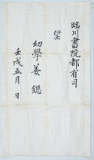 臨川書院都有司
望
幼學姜鍶
壬戌五月 日